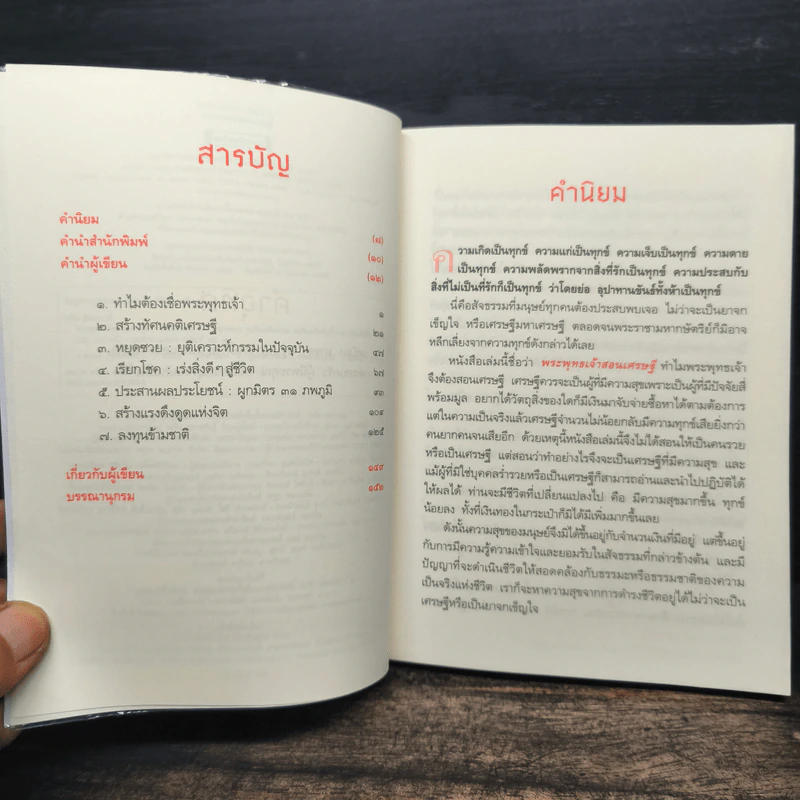 สารบัญ
คำนิยม (๗)
คำนำสำนักพิมพ์ (๑๐)
คำนำผู้เขียน (๑๒)
๑. ทำไมต้องเชื่อพระพุทธเจ้า ๑
๒. สร้างทัศนคติเศรษฐี ๒๑
๓. หยุดซวย : ยุติเคราะห์กรรมในปัจจุบัน ๔๗
๔. เรียกโชค : เร่งสิ่งดีๆ สู่ชีวิต ๖๗
๕. ประสานผลประโยชน์ : ผูกมิตร ๓๑ ภพภูมิ ๙๓
๖. สร้างแรงดึงดูดแห่งจิต ๑๐๙
๗. ลงทุนข้ามชาติ ๑๒๕
เกี่ยวกับผู้เขียน ๑๔๙
บรรณานุกรม ๑๕๒
คำนิยม
ความเกิดเป็นทุกข์ ความแก่เป็นทุกข์ ความเจ็บเป็นทุกข์ ความตาย
เป็นทุกข์ ความพลัดพรากจากสิ่งที่รักเป็นทุกข์ ความประสบกับ
สิ่งที่ไม่เป็นที่รักก็เป็นทุกข์ ว่าโดยย่อ อุปาทานขันธ์ทั้งห้าเป็นทุกข์
นี่คือสัจธรรมที่มนุษย์ทุกคนต้องประสบพบเจอ ไม่ว่าจะเป็นยาจก
เข็ญใจ หรือเศรษฐีมหาเศรษฐี ตลอดจนพระราชามหากษัตริย์ก็มิอาจ
หลีกเลี่ยงจากความทุกข์ดังกล่าวได้เลย
หนังสือเล่มนี้ชื่อว่า พระพุทธเจ้าสอนเศรษฐี ทำไมพระพุทธเจ้า
จึงต้องสอนเศรษฐี เศรษฐีควรจะเป็นผู้ที่มีความสุขเพราะเป็นผู้ที่มีปัจจัยสี่
พร้อมมูล อยากได้วัตถุสิ่งของใดก็มีเงินมาจับจ่ายซื้อหาได้ตามต้องการ
แต่ในความเป็นจริงแล้วเศรษฐีจำนวนไม่น้อยกลับมีความทุกข์เสียยิ่งกว่า
คนยากคนจนเสียอีก ด้วยเหตุนี้หนังสือเล่มนี้จึงไม่ได้สอนให้เป็นคนรวย
หรือเป็นเศรษฐี แต่สอนว่าทำอย่างไรจึงจะเป็นเศรษฐีที่มีความสุข และ
แม้ผู้ที่มิใช่บุคคลร่ำรวยหรือเป็นเศรษฐีก็สามารถอ่านและนำไปปฏิบัติได้
ให้ผลได้ ท่านจะมีชีวิตที่เปลี่ยนแปลงไป คือ มีความสุขมากขึ้น ทุกข์
น้อยลง ทั้งที่เงินทองในกระเป๋าก็มิได้มีเพิ่มมากขึ้นเลย
ดังนั้นความสุขของมนุษย์จึงมิได้ขึ้นอยู่กับจำนวนเงินที่มีอยู่ แต่ขึ้นอยู่
กับการมีความรู้ความเข้าใจและยอมรับในสัจธรรมที่กล่าวข้างต้น และมี
ปัญญาที่จะดำเนินชีวิตให้สอดคล้องกับธรรมะหรือธรรมชาติของความ
เป็นจริงแห่งชีวิต เราก็จะหาความสุขจากการดำรงชีวิตอยู่ได้ไม่ว่าจะเป็น
เศรษฐีหรือเป็นยาจกเข็ญใจ